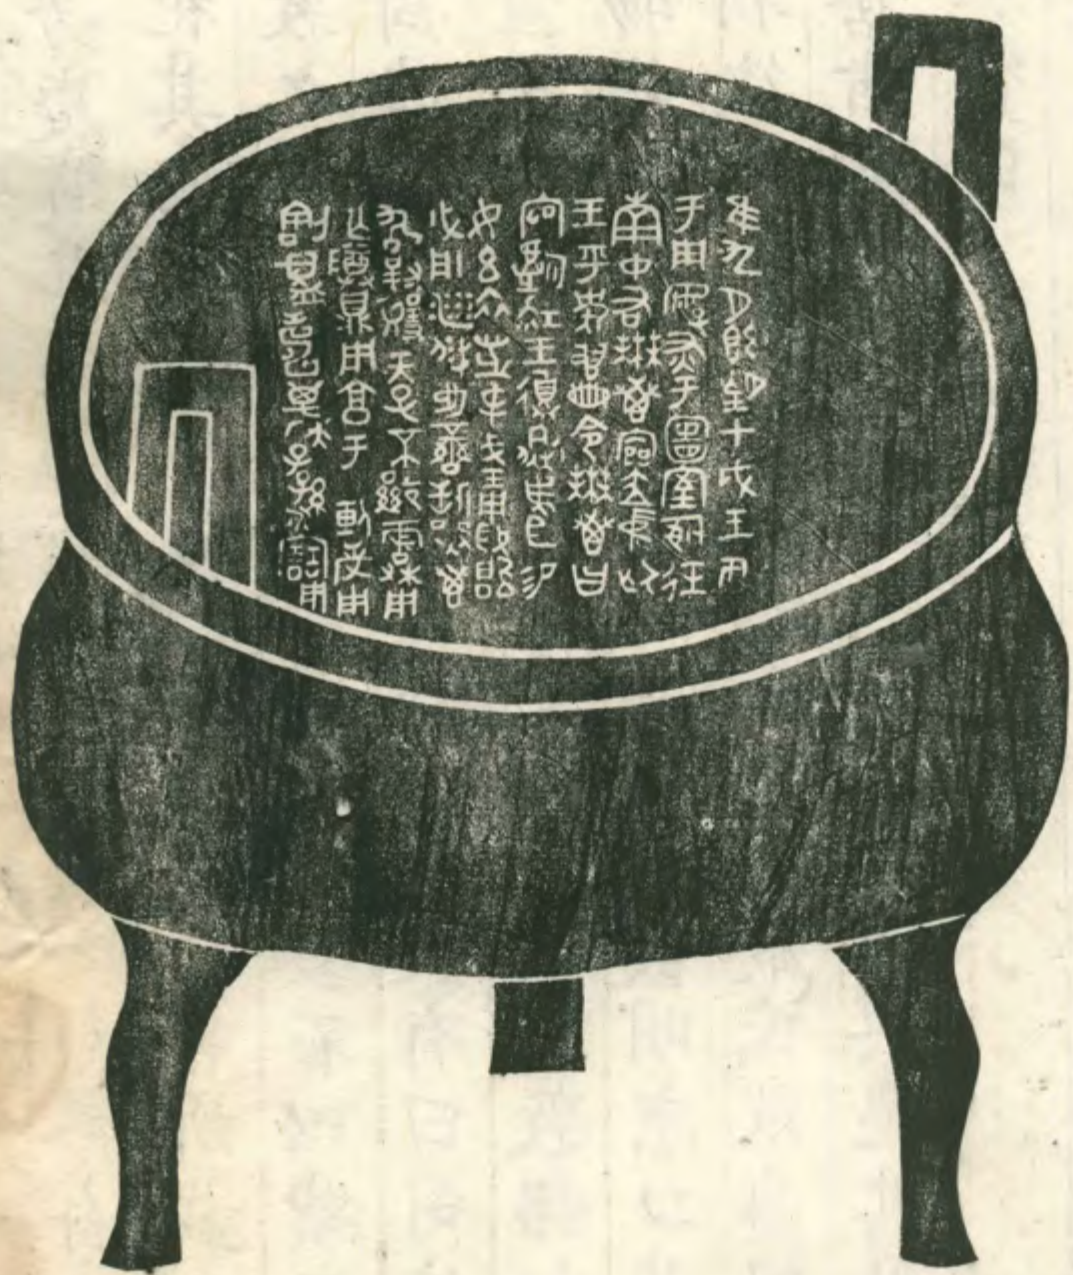 隹九月既望甲戌王各
于周廟述于圖室嗣徒
南中右無叀內門立中廷
王乎史翏冊令無叀曰
官嗣王側虎臣易
女玄衣黹屯戈琱
攸勒鑾旂無叀
敢對揚天子不顯魯休用
乍尊鼎用享于用
割眉壽萬年子孫永寶用